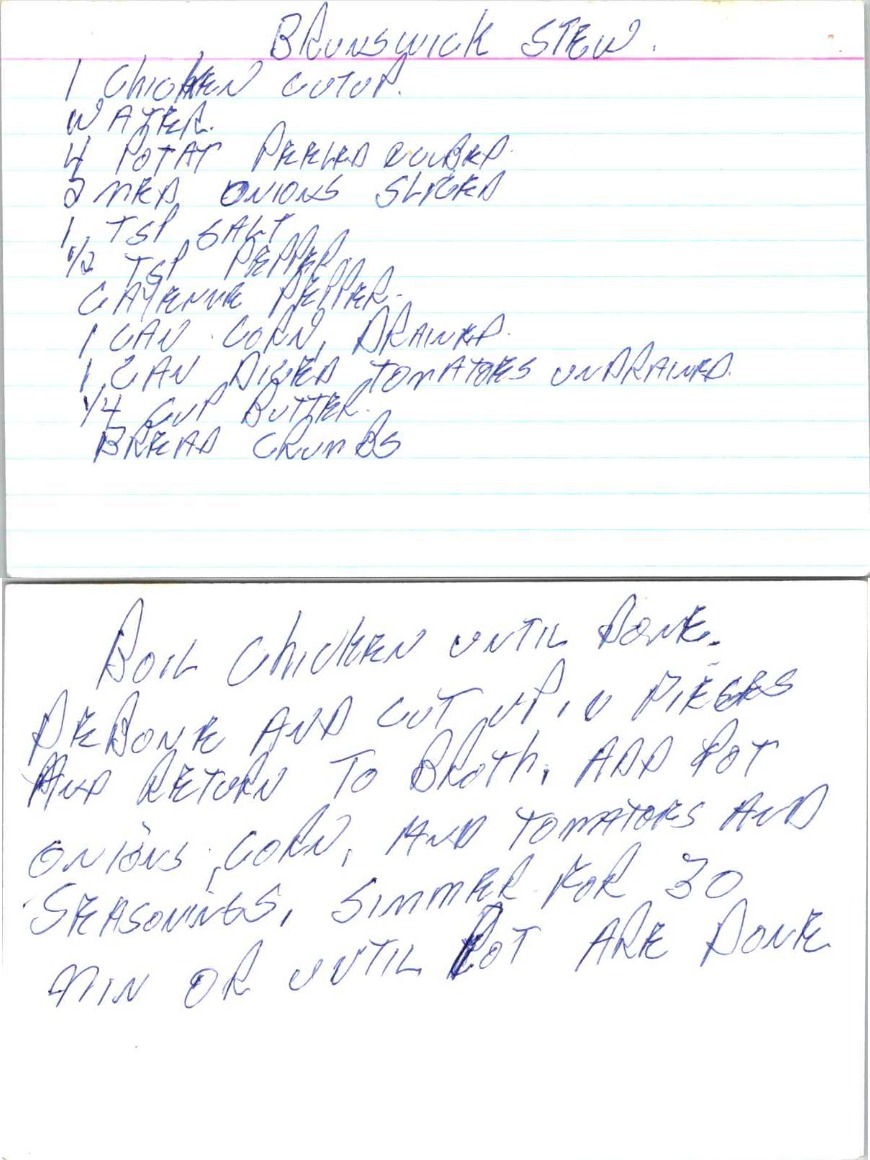 BRUNSWICK STEW.
1 ChICKEN CUTUP.
WATER.
4 POTAT PEELED CUUBED.
2 MED ONIONS SLICED
1 TSP SALT
1/2 TSP PEPPER
CAYENNE PEPPER.
1 CAN CORN, DRAINED.
1 CAN DICED TOMATOES UNDRAINED.
1/4 CUP BUTTER.
BREAD CRUMBS
BOIL ChICKEN UNTIL DONE.
DEBONE AND CUT UP IN PIECES
AND RETURN TO BROTh, ADD POT
ONIONS, CORN, AND TOMATOES AND
SEASONINGS, SIMMER FOR 30
MIN OR UNTIL POT ARE DONE